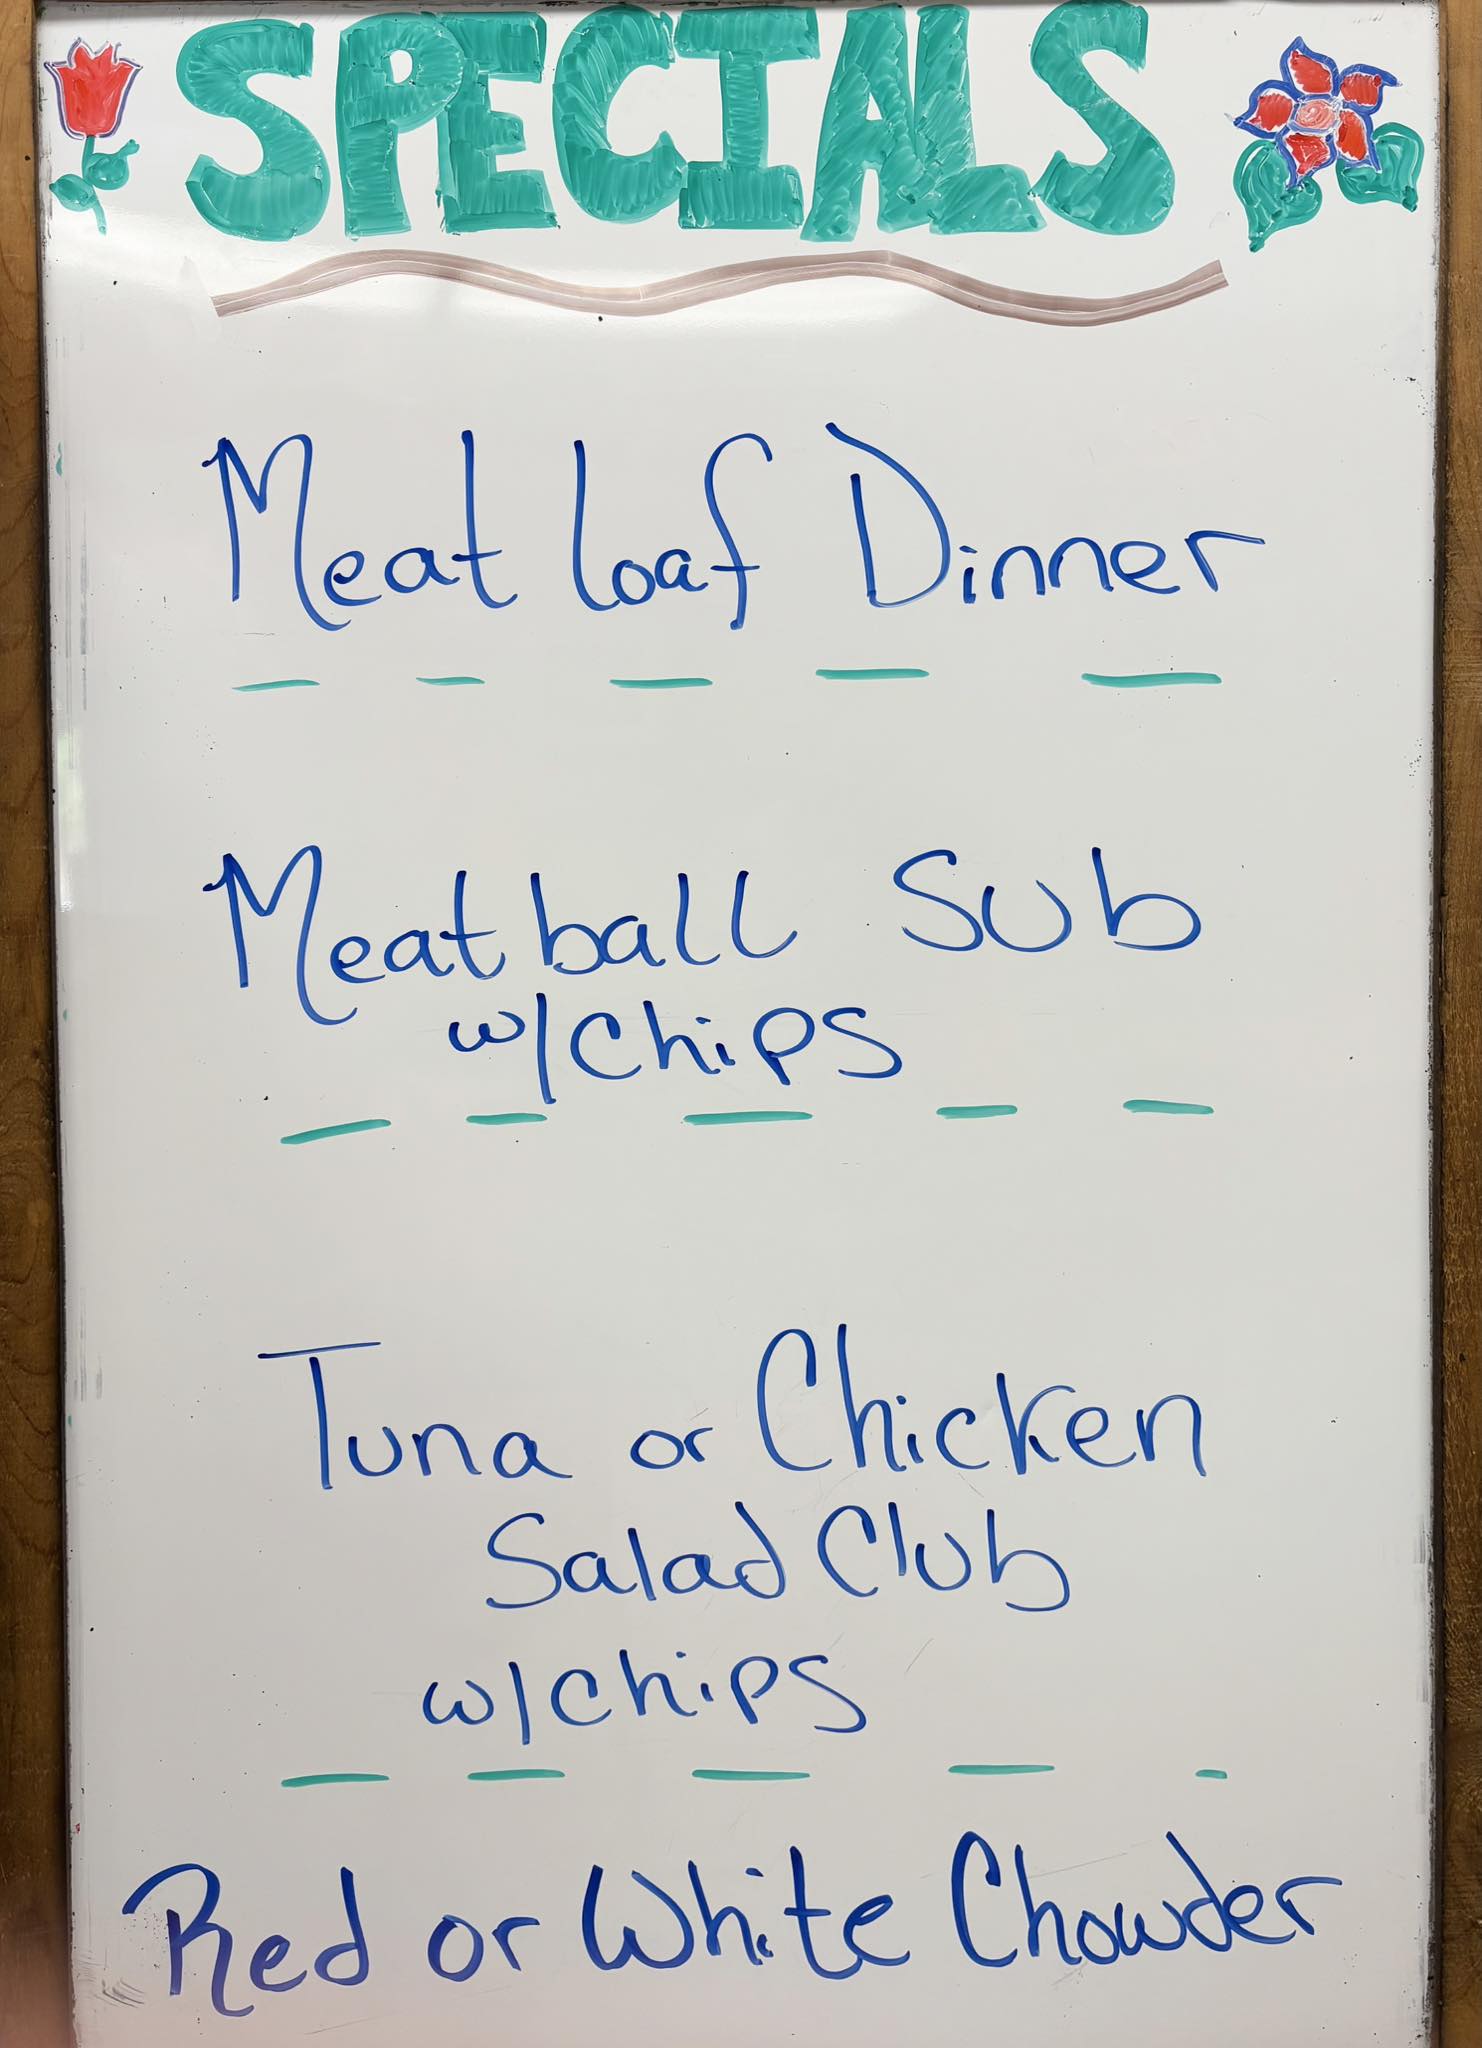 SPECIALS
Meat loaf Dinner
Meatball Sub
w/chips
Tuna or Chicken
Salad Club
w/chips
Red or White Chowder